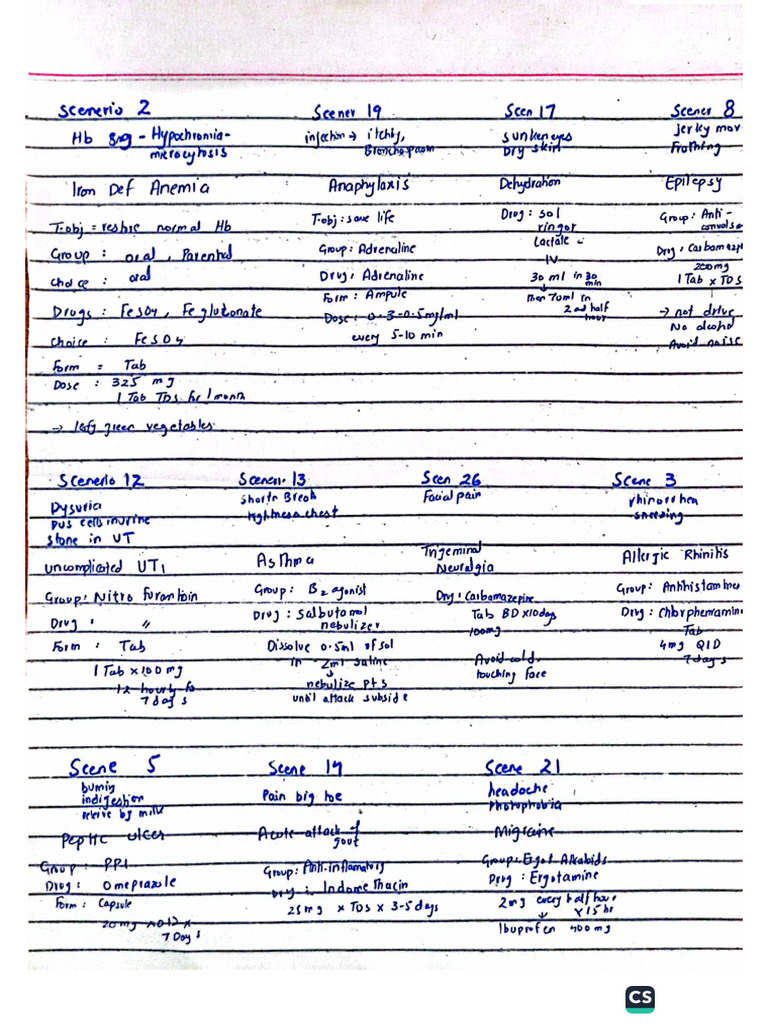 Scenerio 2
Hb 8mg - Hypochromia-
microcytosis
Iron Def Anemia
T.obj = restore normal Hb
Group : oral , Parental
choice : oral
Drugs : FeSO4, Fe glutonate
Choice : FeSO4
Form = Tab
Dose : 325 mg
1 Tab TDS for 1 month
→ leafy green vegetables.
Scener 19
injection → itchy,
Bronchospasm
Anaphylaxis
T.obj : save life
Group : Adrenaline
Drug : Adrenaline
Form : Ampule
Dose : 0.3-0.5mg/ml
every 5-10 min
Sceen 17
sunken eyes
Dry skin
Dehydration
Drug : sol
ringer
Lactate
IV
30 ml in 30
min
then 70ml in
2 and half
hour
Scener 8
Jerky mov
Frothing
Epilepsy
Group : Anti-
convulse
Drug : Carbamazep
200mg
1 Tab x TDS
→ not drive
No alcohol
Avoid noise
Scenerio 12
Dysuria
pus cells in urine
stone in UT
uncomplicated UTI
Group : Nitro furantoin
Drug : "
Form : Tab
1 Tab x 100 mg
12 hourly fo
7 days
Scenerio. 13
Shortn Breath
tightness chest
Asthma
Group : B2 agonist
Drug : Salbutamol
nebulizer
Dissolve 0.5ml of sol
in 2ml saline
↓
nebulize pts
until attack subside
Sceen 26
Facial pain
Trigeminal
Neuralgia
Drug : Carbamazepine
Tab BD x 10days
100mg
Avoid cold,
touching face
Scene 3
rhinorrhea
sneezing
Allergic Rhinitis
Group : Antihistamines
Drug : Chlorphenramine
Tab
4mg QID
7 days
Scene 5
burnig
indigestion
relieve by milk
Peptic ulcer
Group : PPI
Drug : Omeprazole
Form : Capsule
20 mg x
7 Days
Scene 14
Pain big toe
Acute attack of
gout
Group : Anti-inflamatory
Drug : Indomethacin
25mg x TDS x 3-5 days
Scene 21
headache
Photophobia
Migraine
Group : Ergot Alkaloids
Drug : Ergotamine
2mg every half hour
↓
Ibuprofen 400 mg
CS